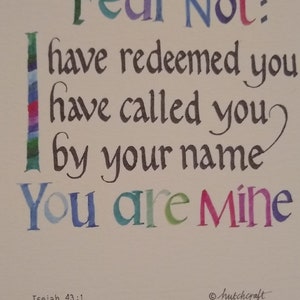 Fear Not:
I have redeemed you
have called you
by your name
You are Mine
Isaiah 43:1 © hutchcraft